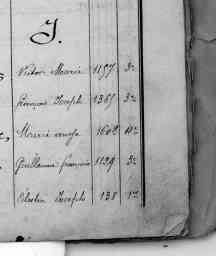 J.
Victor Marie 1157 3e
François Joseph 1365 3e
1602
Guillaume françois 1129 3e
Célestin Joseph 138 1re